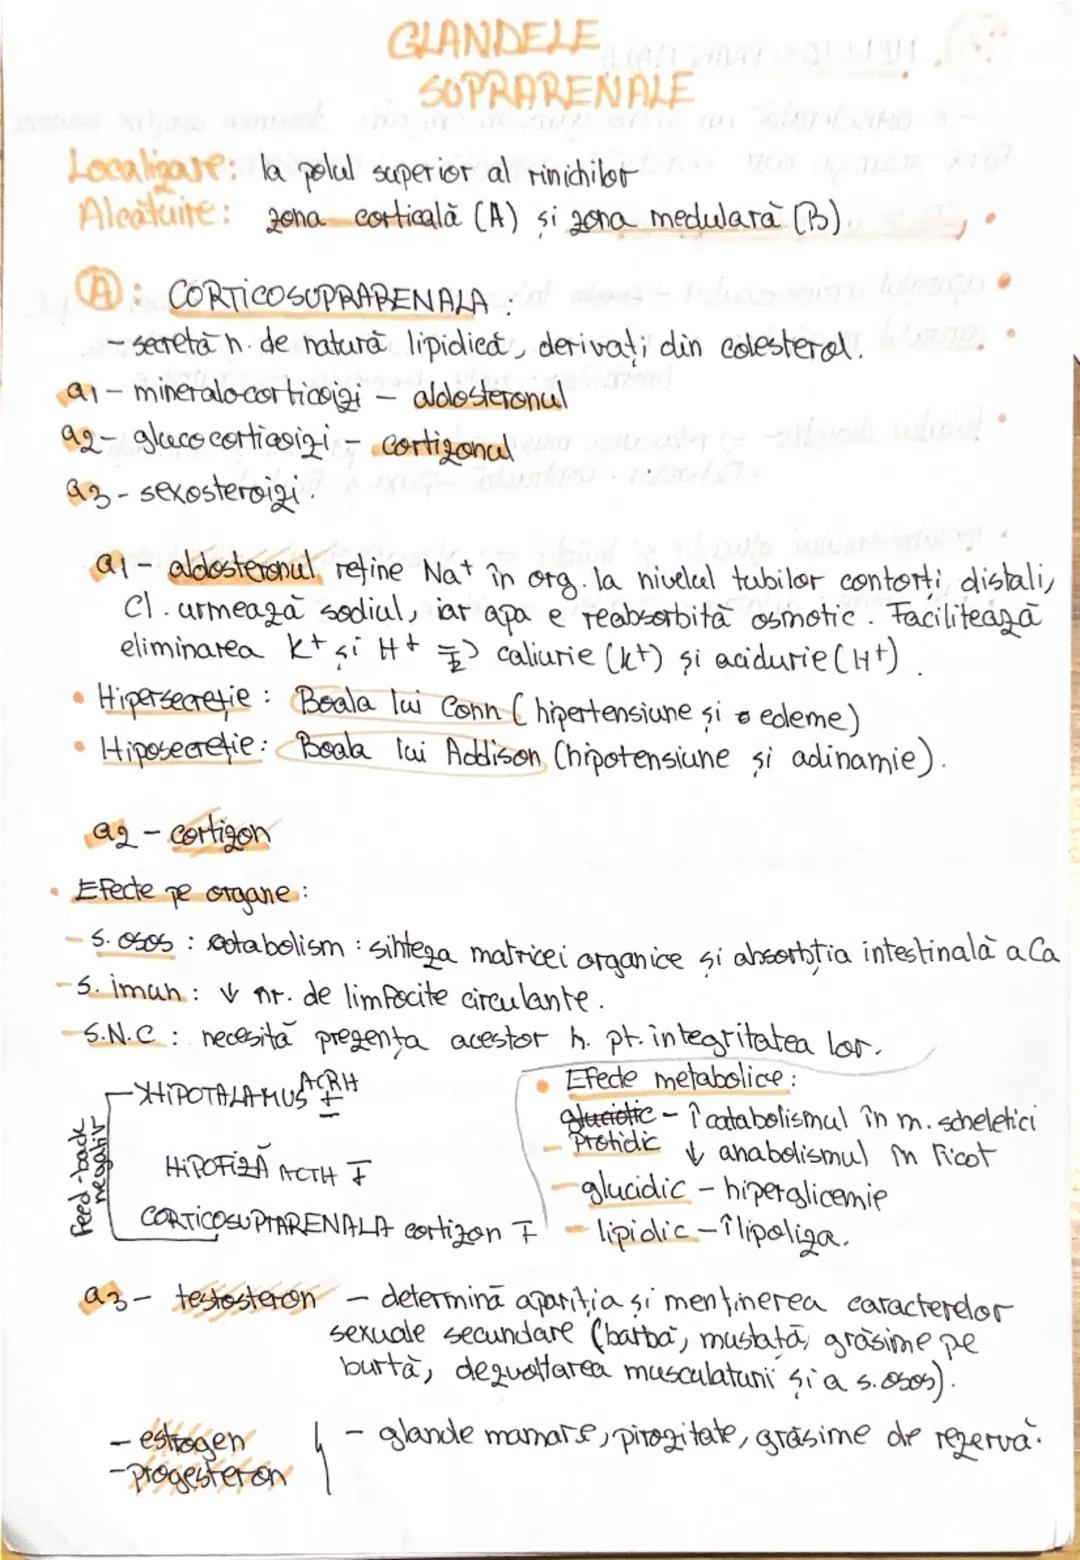 GLANDELE
SUPRARENALE
Localizare: la polul superior al rinichilor
Alcătuire: zona corticală (A) și zona medulară (B).
A: CORTICOSUPRARENALA:
- secretă h. de natură lipidică, derivați din colesterol.
a1 - mineralocorticoizi - aldosteronul
a2 - glucocorticoizi - cortizonul
a3 - sexosteroizi.
a1 - aldosteronul reține Na+ în org. la nivelul tubilor contorți distali,
Cl. urmează sodiul, iar apa e reabsorbită osmotic. Facilitează
eliminarea K+ și H+ => caliurie (K+) și acidurie (H+).
• Hipersecreție: Boala lui Conn (hipertensiune și edeme)
• Hiposecreție: Boala lui Addison (hipotensiune și adinamie).
a2 - cortizon
• Efecte pe organe:
- s. osos: catabolism: sinteza matricei organice și absorbția intestinală a Ca
- s. imun: ↓ nr. de limfocite circulante.
- S.N.C: necesită prezența acestor h. pt. integritatea lor.
Feed-back negativ
HIPOTALAMUS ACRH
HIPOFIZĂ ACTH
CORTICOSUPRARENALA cortizon
• Efecte metabolice:
glucidic - ↑ catabolismul în m. scheletici
- Protidic ↓ anabolismul în ficat
- glucidic - hiperglicemie
- lipidic - ↑ lipoliza.
a3 - testosteron - determină apariția și menținerea caracterelor
sexuale secundare (barbă, mustață, grăsime pe
burtă, dezvoltarea musculaturii și a s. osos).
- estrogen
- progesteron
- glande mamare, pirozitate, grăsime de rezervă.